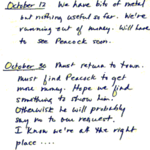 October 12 We have bits of metal
but nothing useful so far. We're
running out of money. Will have
to see Peacock soon.
October 30 Must return to town.
Must find Peacock to get
more money. Hope we find
something to show him.
Otherwise he will probably
say no to our request.
I know we're at the right
place ....